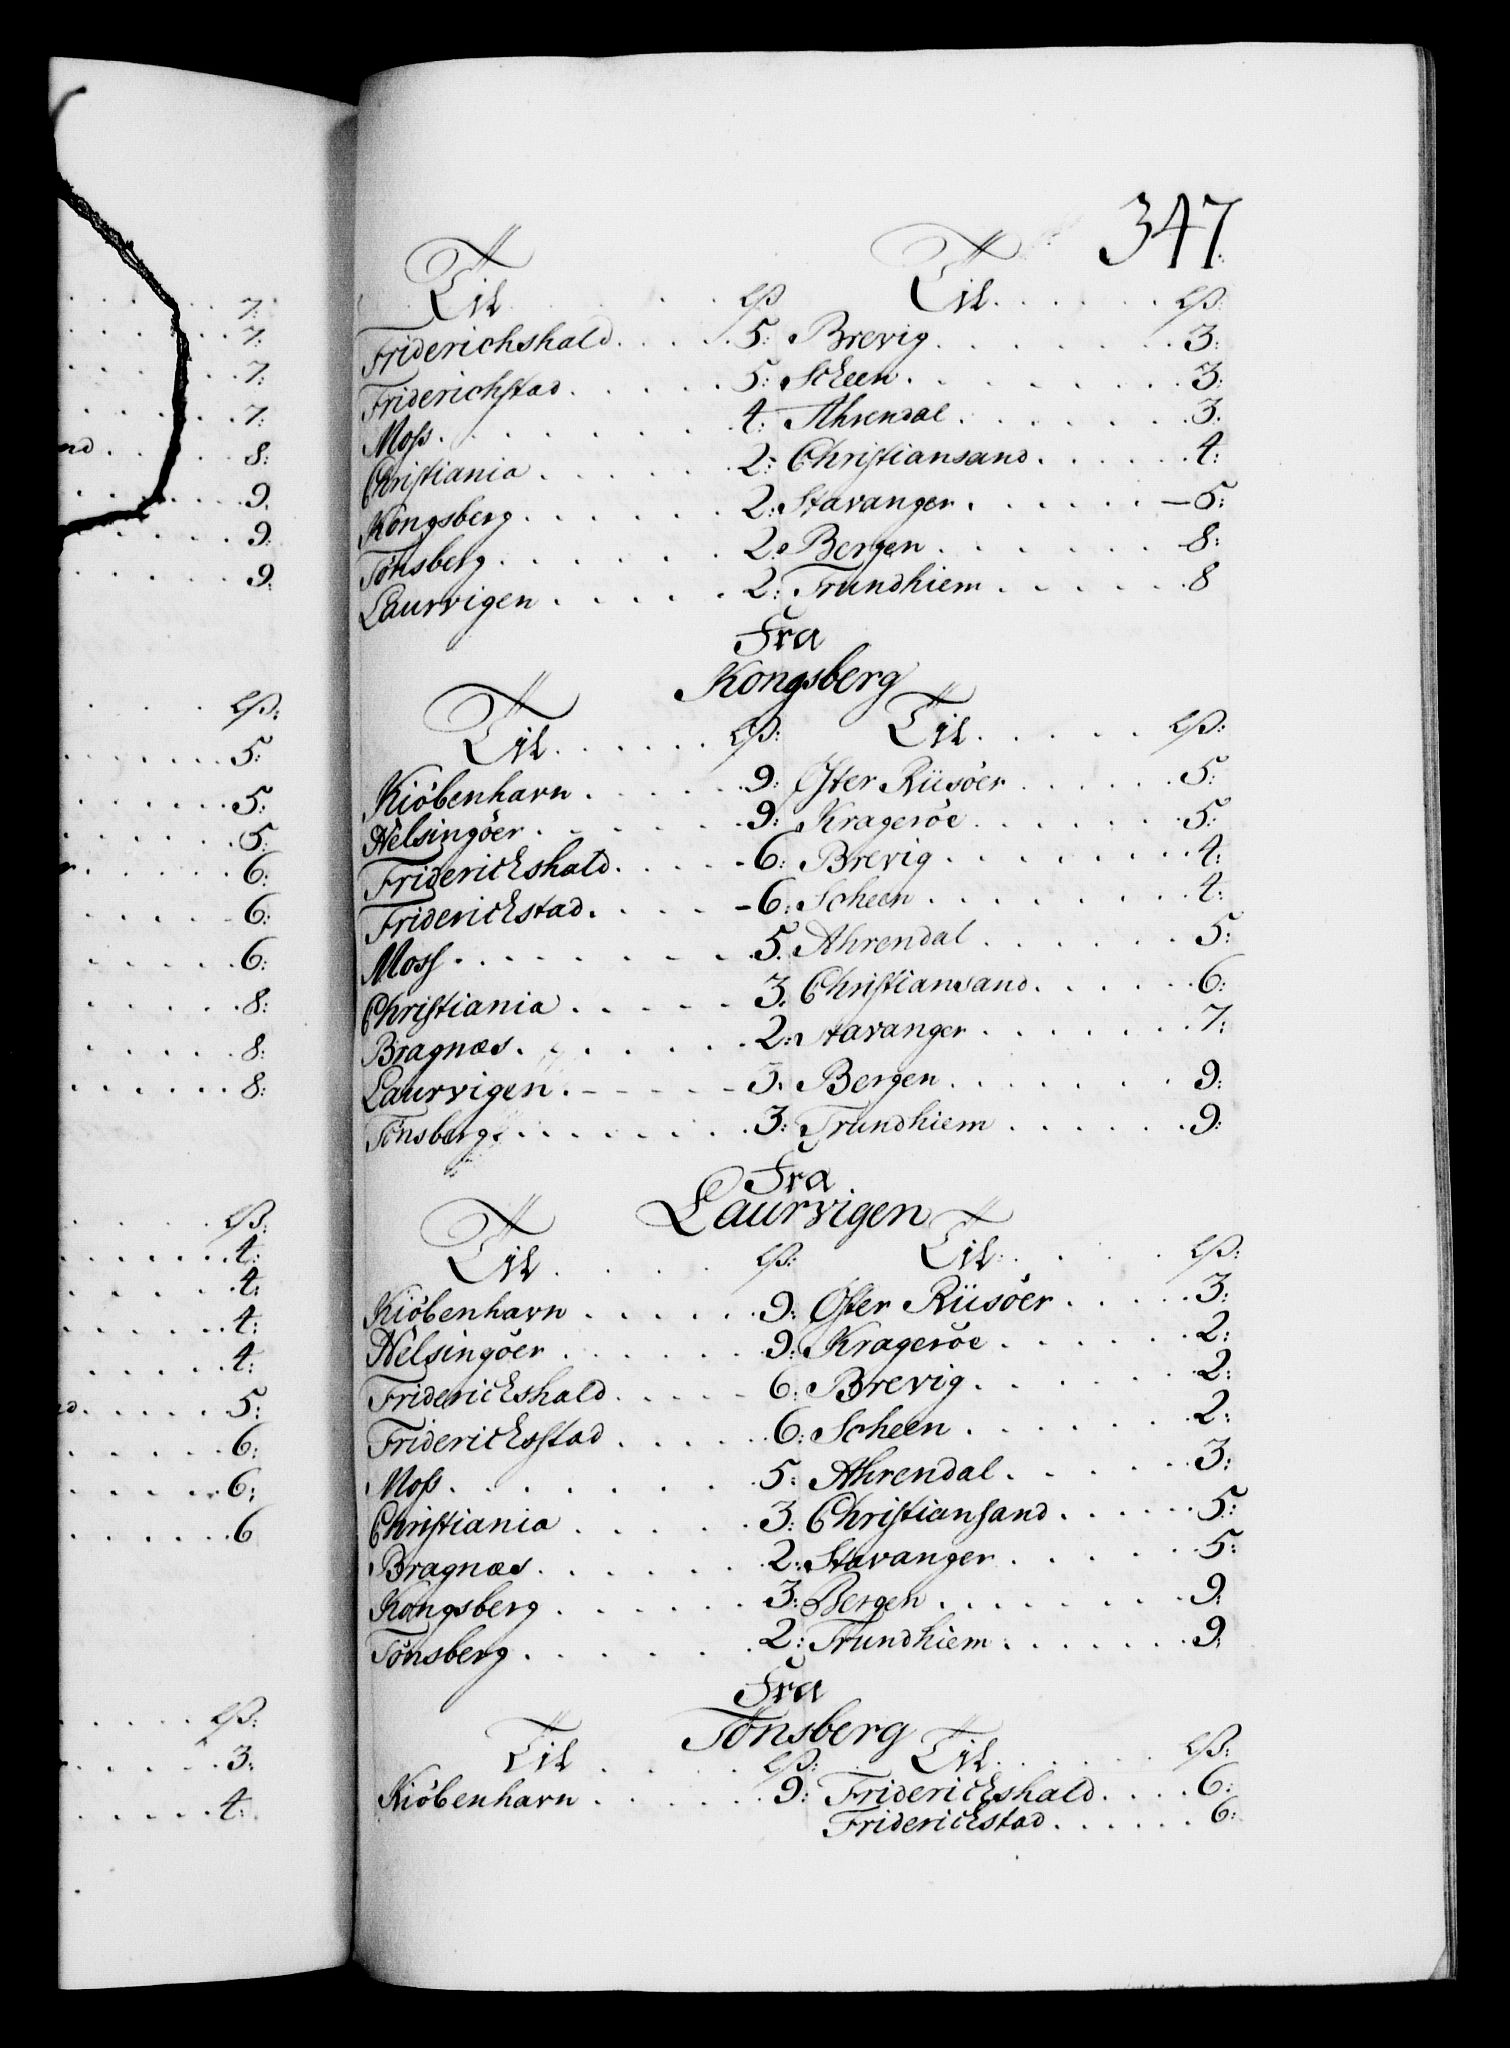 347.
Til . . . . lß Til . . . . lß:
Friderichshald . . . . 5: Brevig . . . . 3:
Friderichstad . . . . 5: Scheen . . . . 3:
Moss . . . . 4: Ahrendal . . . . 3:
Christiania . . . . 2: Christiansand . . . . 4:
Kongsberg . . . . 2: Stavanger . . . . 5:
Tønsberg . . . . 2: Bergen . . . . 8:
Laurvigen . . . . 2: Trundhiem . . . . 8
Fra
Kongsberg
Til . . . . lß: Til . . . . lß:
Kiøbenhavn . . . . 9: Øster Riisöer . . . . 5:
Helsingöer . . . . 9: Krageröe . . . . 5:
Friderickshald . . . . 6: Brevig . . . . 4:
Friderickstad . . . . 6: Scheen . . . . 4:
Moss . . . . 5. Ahrendal . . . . 5:
Christiania . . . . 3. Christiansand . . . . 6:
Bragnæs . . . . 2: Stavanger . . . . 7:
Laurvigen . . . . 3. Bergen . . . . 9:
Tønsberg . . . . 3: Trundhiem . . . . 9:
Fra
Laurvigen
Til . . . . lß: Til . . . . lß:
Kiøbenhavn . . . . 9: Øster Riisöer . . . . 3:
Helsingöer . . . . 9: Krageröe . . . . 2:
Friderickshald . . . . 6: Brevig . . . . 2:
Fridericksstad . . . . 6: Scheen . . . . 2:
Moss . . . . 5: Ahrendal . . . . 3:
Christiania . . . . 3: Christiansand . . . . 5:
Bragnæs . . . . 2: Stavanger . . . . 5:
Kongsberg . . . . 3: Bergen . . . . 9:
Tønsberg . . . . 2: Trundhiem . . . . 9:
Fra
Tønsberg
Til . . . . lß: Til . . . . lß:
Kiøbenhavn . . . . 9: Friderickshald . . . . 6:
Friderickstad . . . . 6: